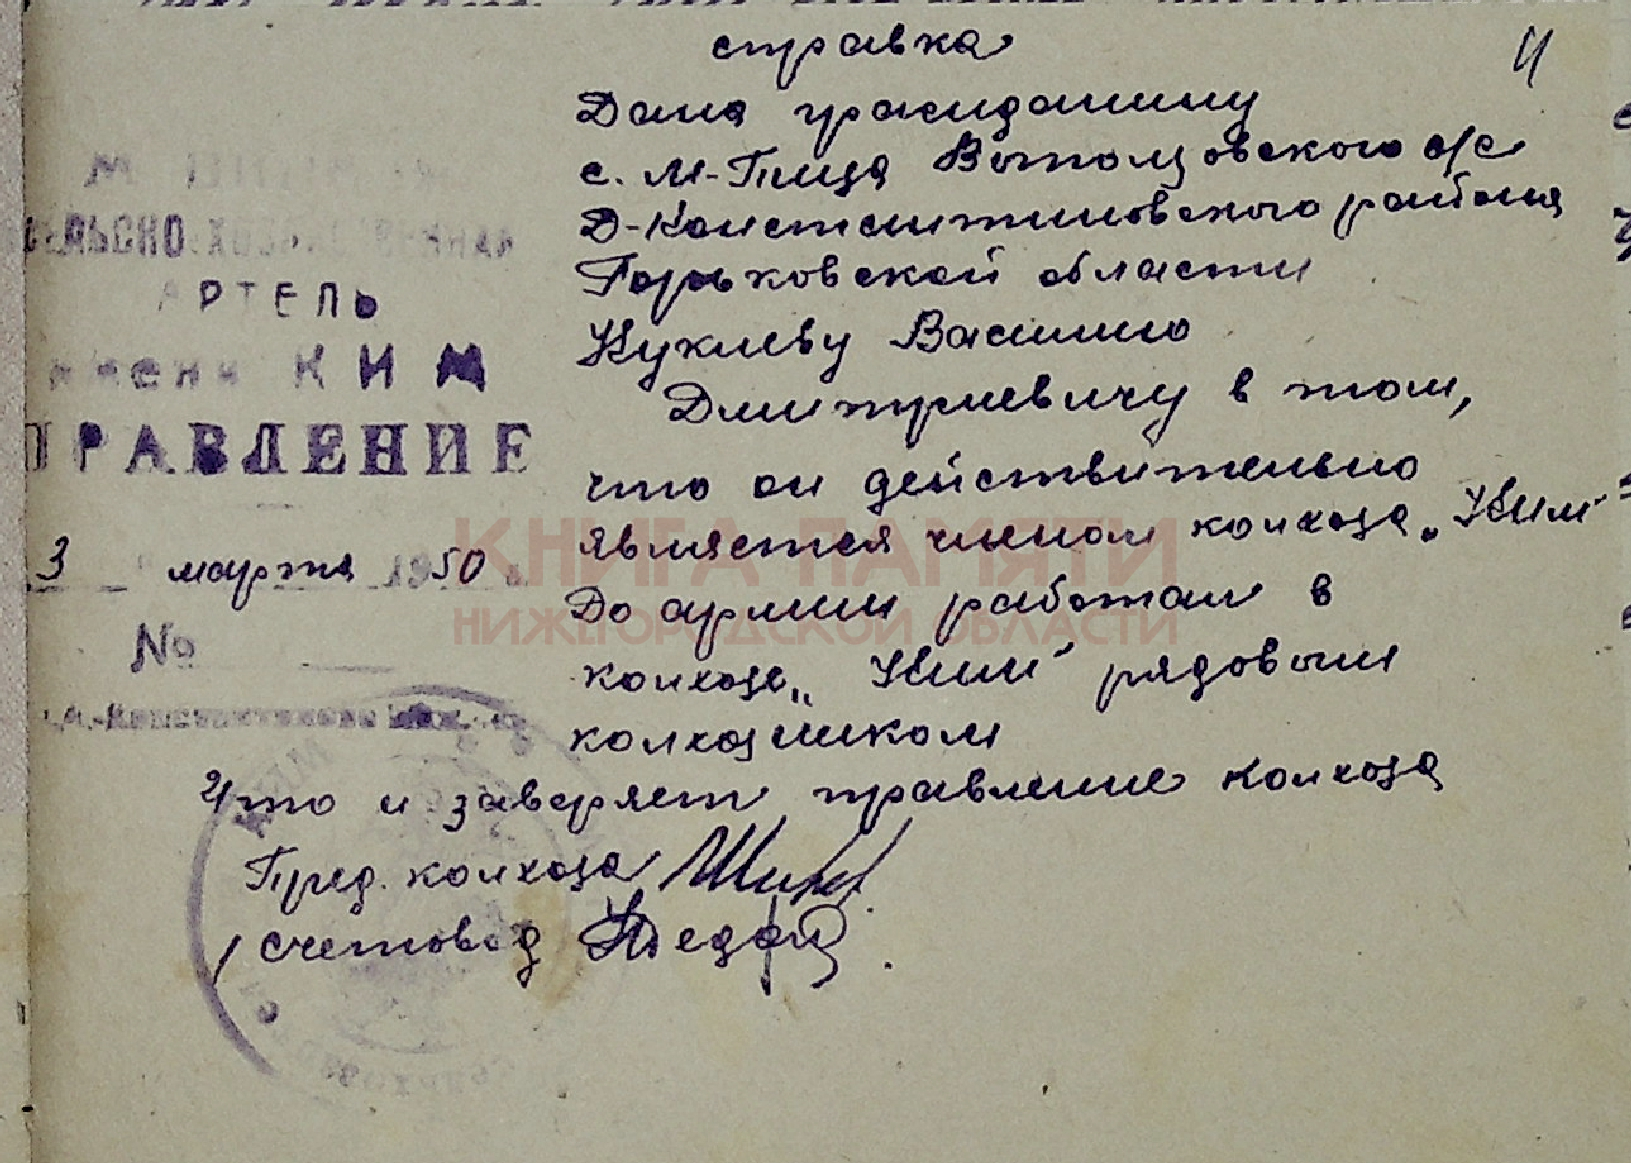 справка
11
Дана гражданину
с. М-Пица Вытолзовского с/с
Д-Константиновского района
Горьковской области
Куклеву Василию
Дмитриевичу в том,
что он действительно
является членом колхоза „Ким"
До армии работал в
колхозе „Ким" рядовым
колхозником
Что и заверяет правление колхоза
Пред. колхоза
счетовод
АРТЕЛЬ
имени КИМ
ПРАВЛЕНИЕ
3 марта 1950 г.
№
КНИГА ПАМЯТИ
НИЖЕГОРОДСКОЙ ОБЛАСТИ